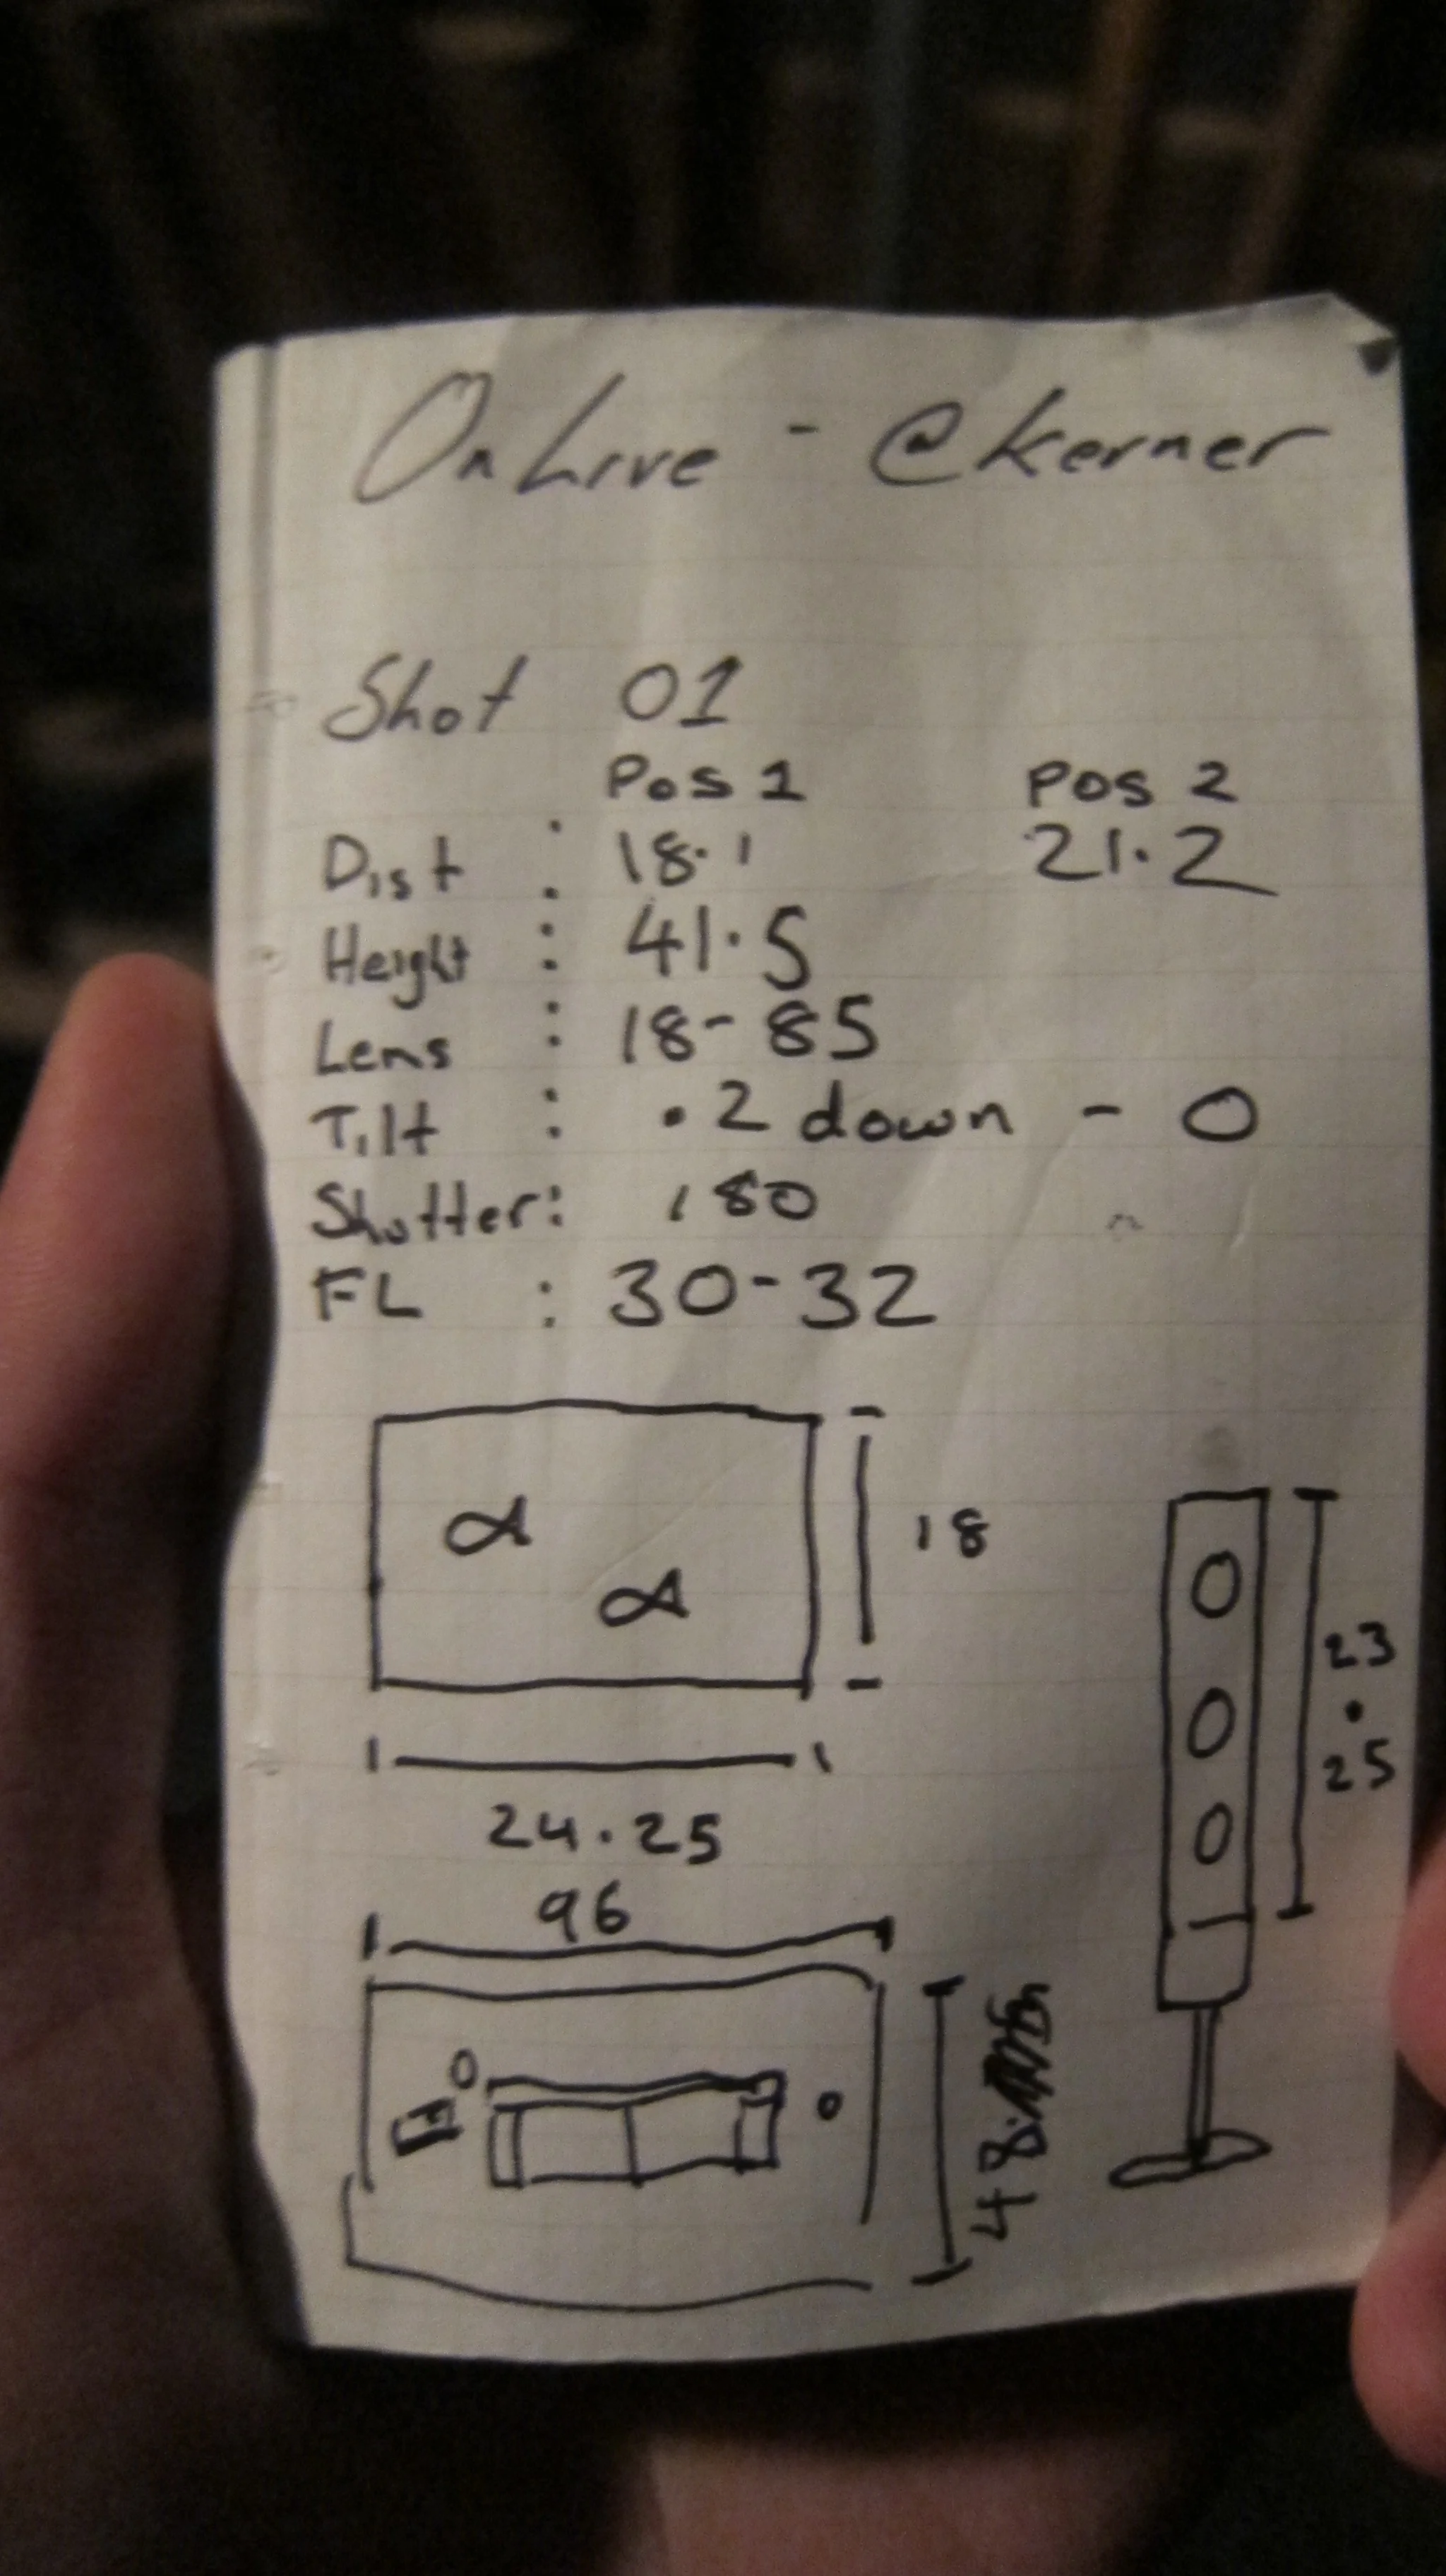 OnLive - @kerner
Shot 01
Pos 1 Pos 2
Dist : 18.1 21.2
Height : 41.5
Lens : 18-85
Tilt : .2 down - 0
Shutter: 180
FL : 30-32
18
23.25
24.25
96
48